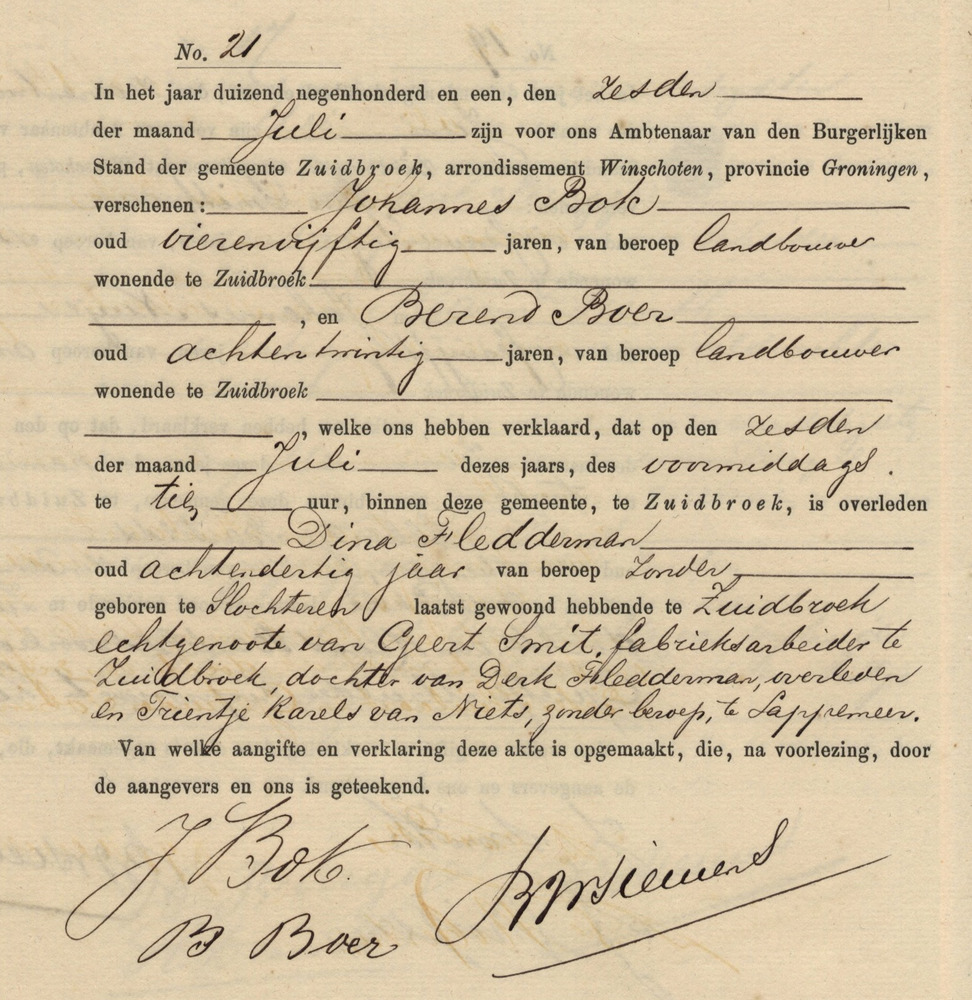 No. 21
In het jaar duizend negenhonderd en een, den zesden
der maand Juli zijn voor ons Ambtenaar van den Burgerlijken
Stand der gemeente Zuidbroek, arrondissement Winschoten, provincie Groningen,
verschenen: Johannes Bok
oud vierenvijftig jaren, van beroep landbouwer
wonende te Zuidbroek
, en Berend Boer
oud achtentwintig jaren, van beroep landbouwer
wonende te Zuidbroek
, welke ons hebben verklaard, dat op den zesden
der maand Juli dezes jaars, des voormiddags.
te tien uur, binnen deze gemeente, te Zuidbroek, is overleden
Dina Fledderman
oud achtendertig jaar van beroep zonder,
geboren te Slochteren laatst gewoond hebbende te Zuidbroek
echtgenoote van Geert Smit, fabrieksarbeider te
Zuidbroek, dochter van Derk Fledderman, overleden
en Trientje Karels van Niets, zonder beroep, te Sappemeer.
Van welke aangifte en verklaring deze akte is opgemaakt, die, na voorlezing, door
de aangevers en ons is geteekend.
J Bok.
B Boer